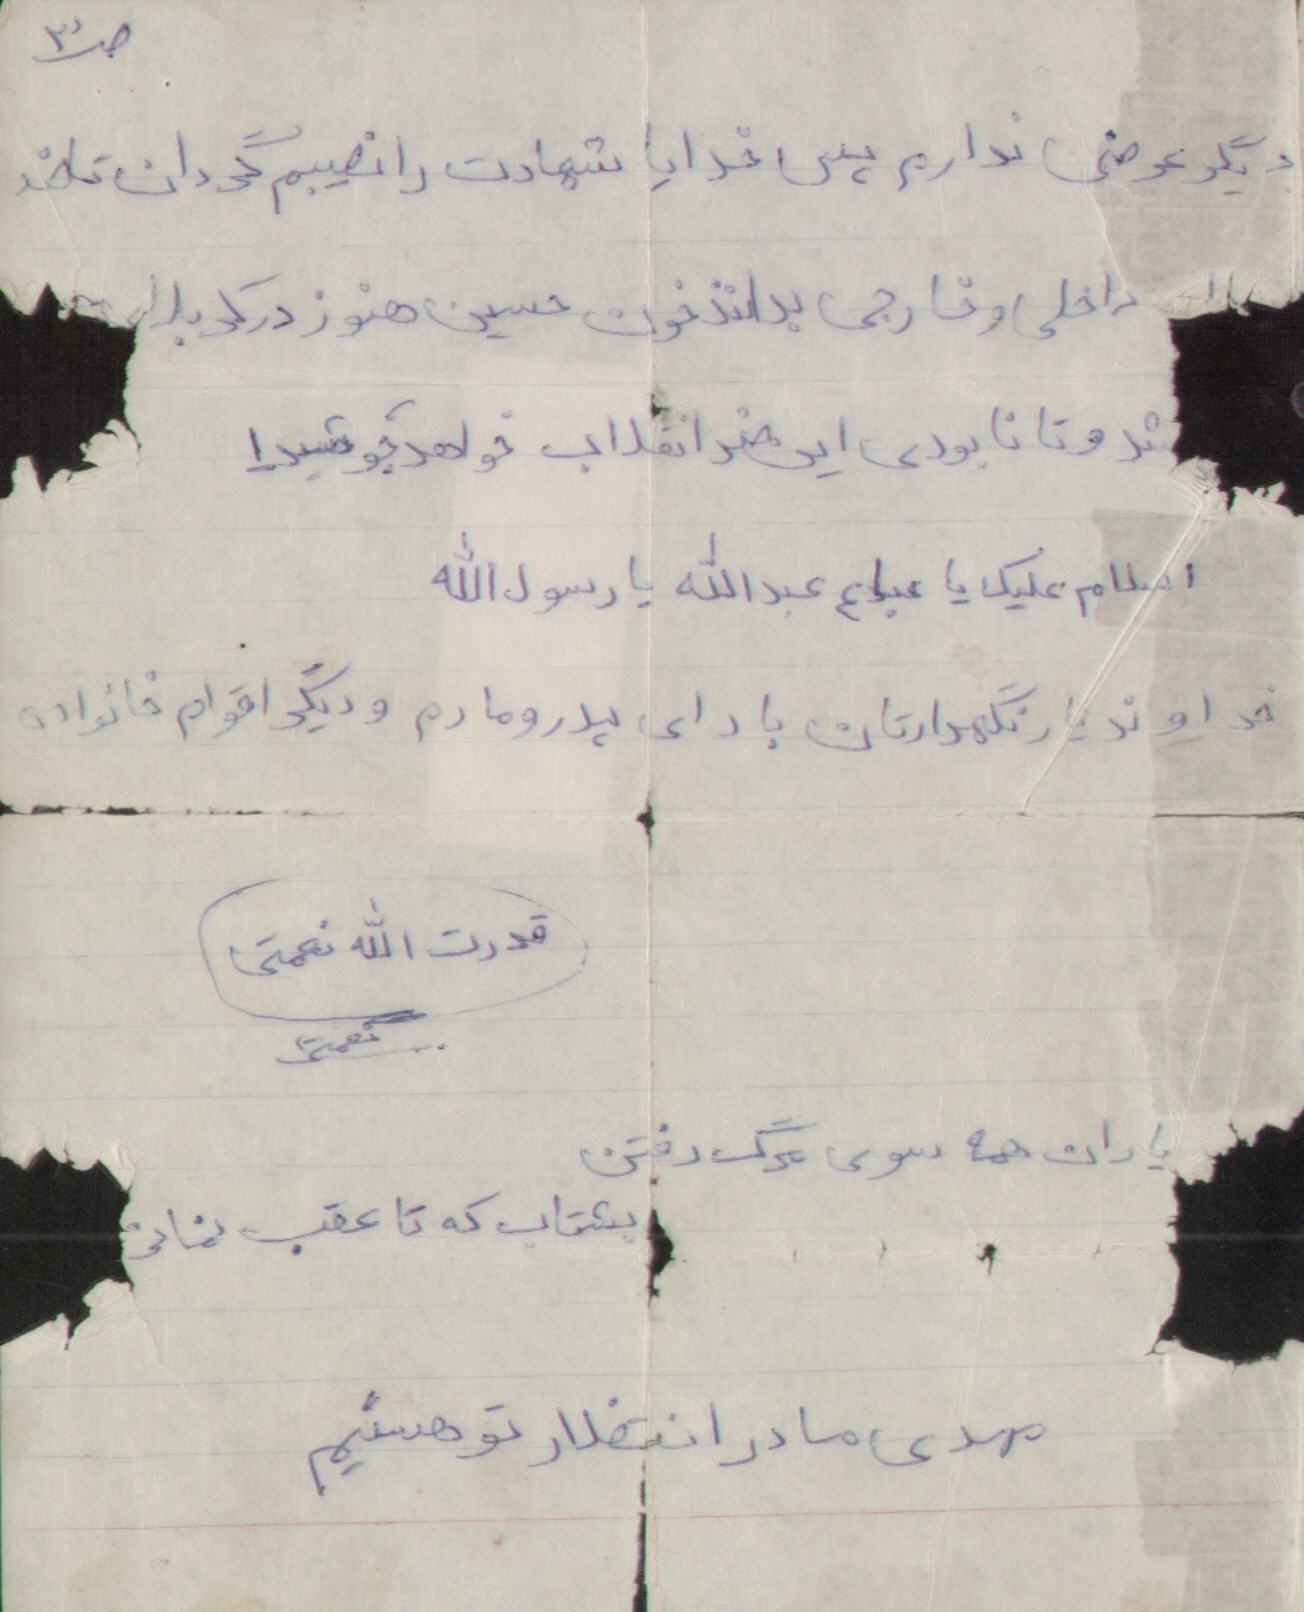 ص ۳
دیگر عرضی ندارم پس خدایا شهادت را نصیبم گردان تا ضد
داخلی و خارجی بدانند خون حسین هنوز در کربلا
شد و تا نابودی این ضد انقلاب خواهد جوشید
اسلام علیک یا عبدالله یا رسول الله
خداوند یار نگهدارتان باد ای پدر و مادرم و دیگر اقوام خانواده
قدرت الله نعمتی
نعمتی
یاران همه سوی مرگ رفتن
بشتاب که تا عقب نمانی
مهدی ما در انتظار تو هستیم